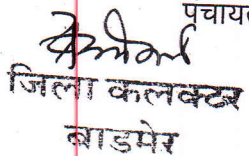 पंचायत
जिला कलक्टर
बाडमेर